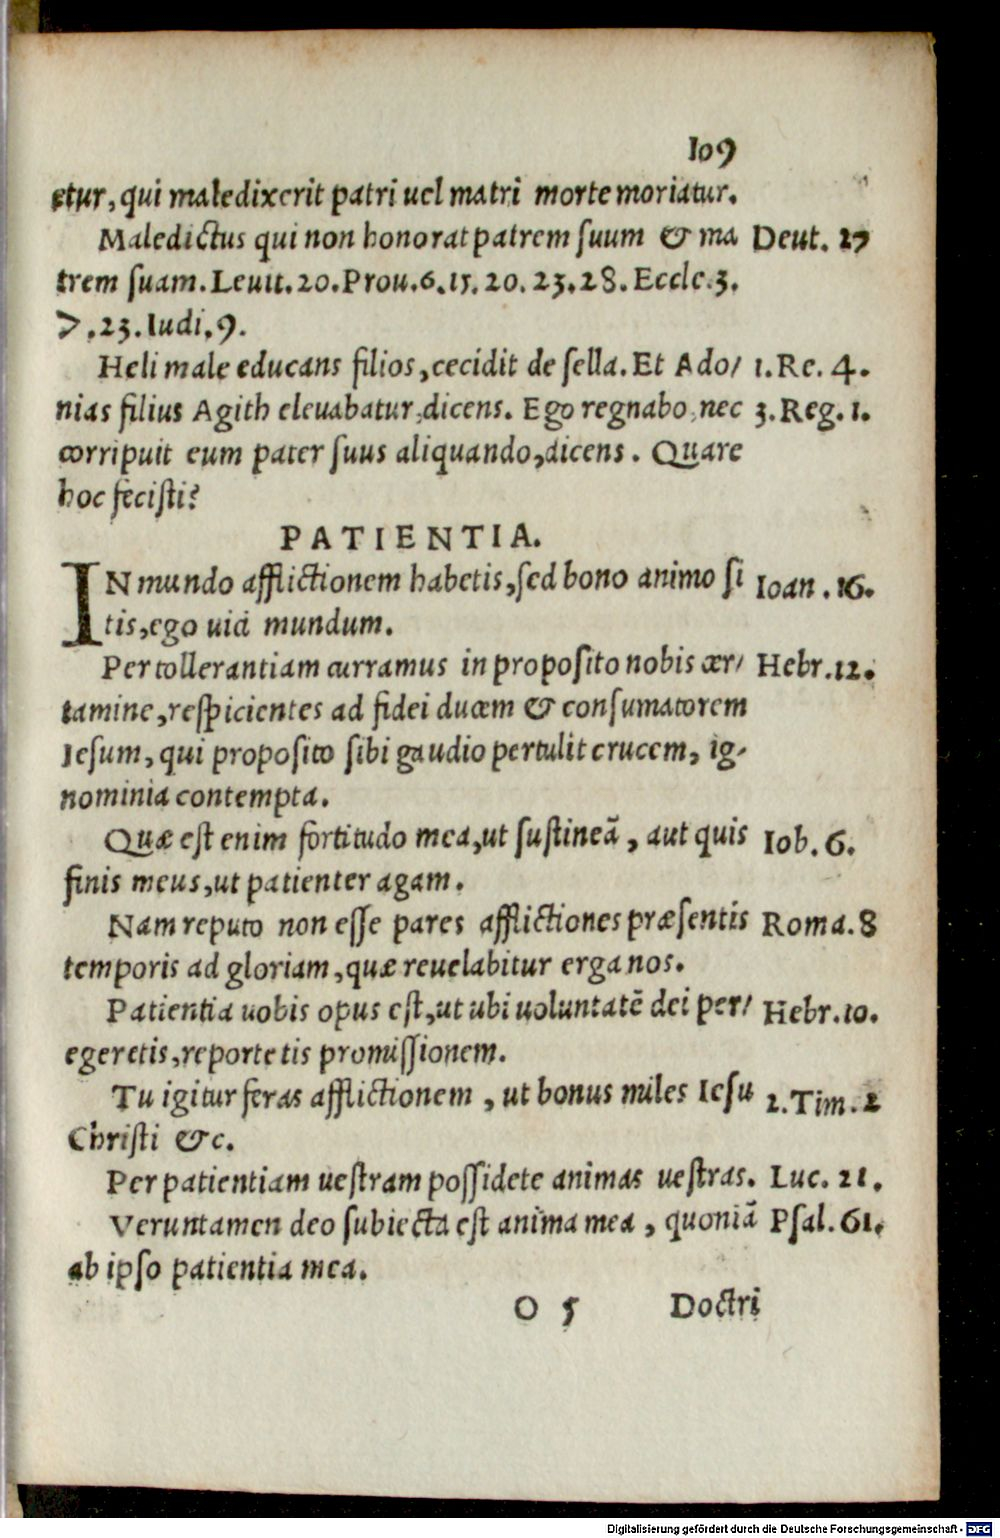 109
etur, qui maledixerit patri uel matri morte moriatur.
Maledictus qui non honorat patrem suum & ma Deut. 27
trem suam. Leuit. 20. Prou. 6. 15. 20. 23. 28. Eccle. 3.
7. 23. Iudi. 9.
Heli male educans filios, cecidit de sella. Et Ado/ 1. Re. 4.
nias filius Agith eleuabatur, dicens. Ego regnabo, nec 3. Reg. 1.
corripuit eum pater suus aliquando, dicens. Quare
hoc fecisti?
PATIENTIA.
IN mundo afflictionem habetis, sed bono animo si Ioan. 16.
tis, ego uici mundum.
Per tollerantiam curramus in proposito nobis cer/ Hebr. 12.
tamine, respicientes ad fidei ducem & consumatorem
Iesum, qui proposito sibi gaudio pertulit crucem, ig-
nominia contempta.
Quæ est enim fortitudo mea, ut sustineã, aut quis Iob. 6.
finis meus, ut patienter agam.
Nam reputo non esse pares afflictiones præsentis Roma. 8
temporis ad gloriam, quæ reuelabitur erga nos.
Patientia uobis opus est, ut ubi uoluntatẽ dei per/ Hebr. 10.
egeretis, reportetis promissionem.
Tu igitur feras afflictionem, ut bonus miles Iesu 2. Tim. 2
Christi &c.
Per patientiam uestram possidete animas uestras. Luc. 21.
Veruntamen deo subiecta est anima mea, quoniã Psal. 61.
ab ipso patientia mea.
O 5 Doctri
Digitalisierung gefördert durch die Deutsche Forschungsgemeinschaft - DFG